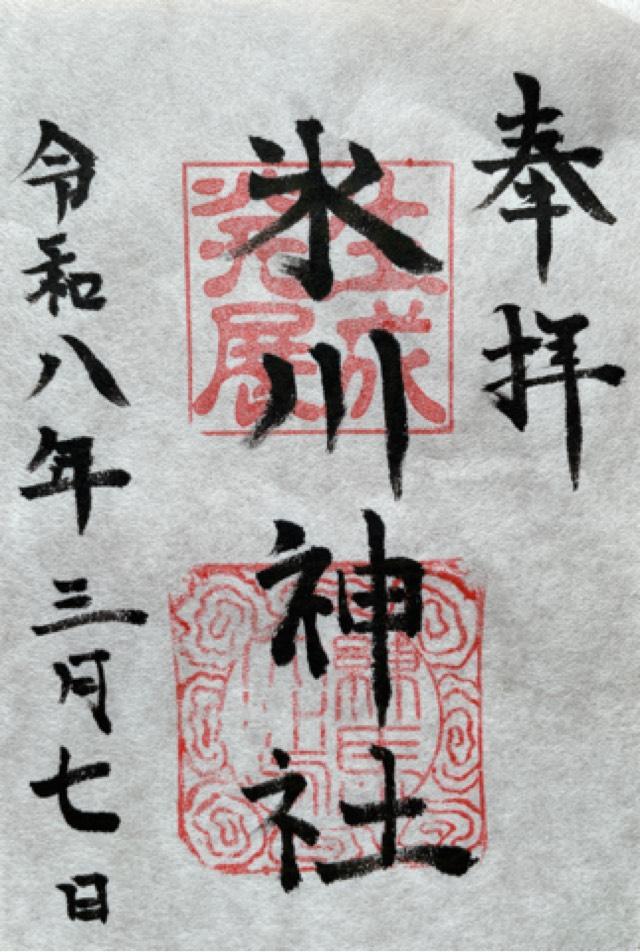 奉拝
氷川神社
生成
発展
令和八年三月七日